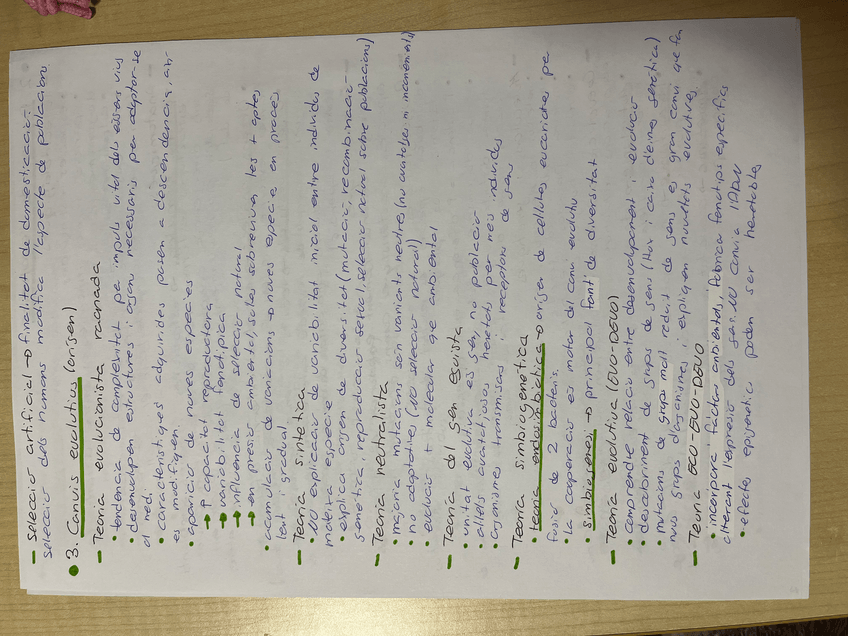 - Selecció artificial → finalitat de domesticació.
selecció dels humans modifica l'aspecte de poblacions
• 3. Canvis evolutius (origen)
- Teoria evolucionista raonada
• tendència de complexitat per impuls vital dels éssers vius
• desenvolupen estructures i òrgans necessaris per adaptar-se
al medi.
• característiques adquirides passen a descendència,
es modifiquen.
• aparició de noves espècies
→ ↑ capacitat reproductora
→ variabilitat fenotípica
→ influència de selecció natural
→ en pressió ambiental, sols sobreviuen les + aptes
• acumulació de variacions → noves espècie en procés
lent i gradual
- Teoria sintètica
• NO explicació de variabilitat inicial entre individus de
mateixa espècie
• explica origen de diversitat (mutació, recombinació
genètica, reproducció sexual, selecció natural sobre poblacions)
- Teoria neutralista
• majoria mutacions són variants neutres (ni avantatges ni inconvenients)
• no adaptatives (NO selecció natural)
• evolució + molecular que ambiental
- Teoria del gen egoista
• unitat evolutiva és gen, no població
• al·lels avantatjosos heretats per més individus
• organismes transmissors i receptors de gens
- Teoria simbiogenètica
• teoria endosimbiòtica → origen de cèl·lules eucariotes per
fusió de 2 bacteris.
• la cooperació és motor del canvi evolutiu
• simbiogènesi → principal font de diversitat
- Teoria evolutiva (EVO-DEVO)
• comprendre relació entre desenvolupament i evolució
• descobriment de grups de gens (Hox i caixa d'eines genètica)
• mutacions de grup molt reduït de gens és gran canvi que fan
nous grups d'organismes i expliquen novetats evolutives
- Teoria ECO-EVO-DEVO
• incorpora factors ambientals, fabrica fenotips específics
alterant l'expressió dels gens. NO canvia l'ADN
• efectes epigenètics poden ser heretables